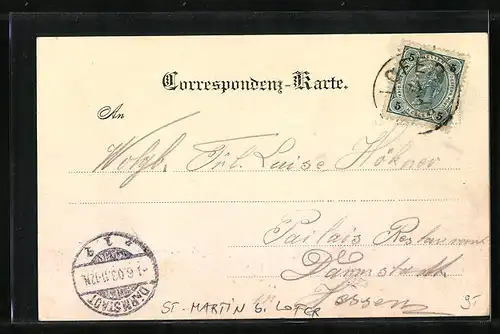 Correspondenz-Karte.
An
Wolgb. Frl. Luise Höhner
Pailais Restaurant
Darmstadt
Hessen
DARMSTADT
1.6.03.11-12V.
ST. MARTIN b. LOFER
95
5 5
5 5